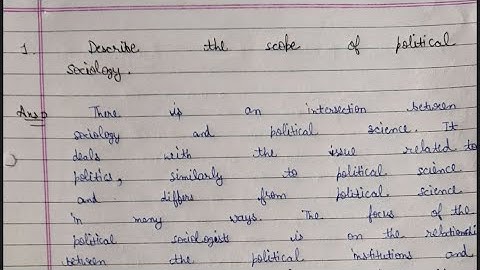 1. Describe the scope of political
sociology.
Ans There is an intersection between
sociology and political science. It
deals with the issue related to
politics, similarly to political science
and differs from political science
in many ways. The focus of the
political sociologists is on the relationshi
between the political institutions and